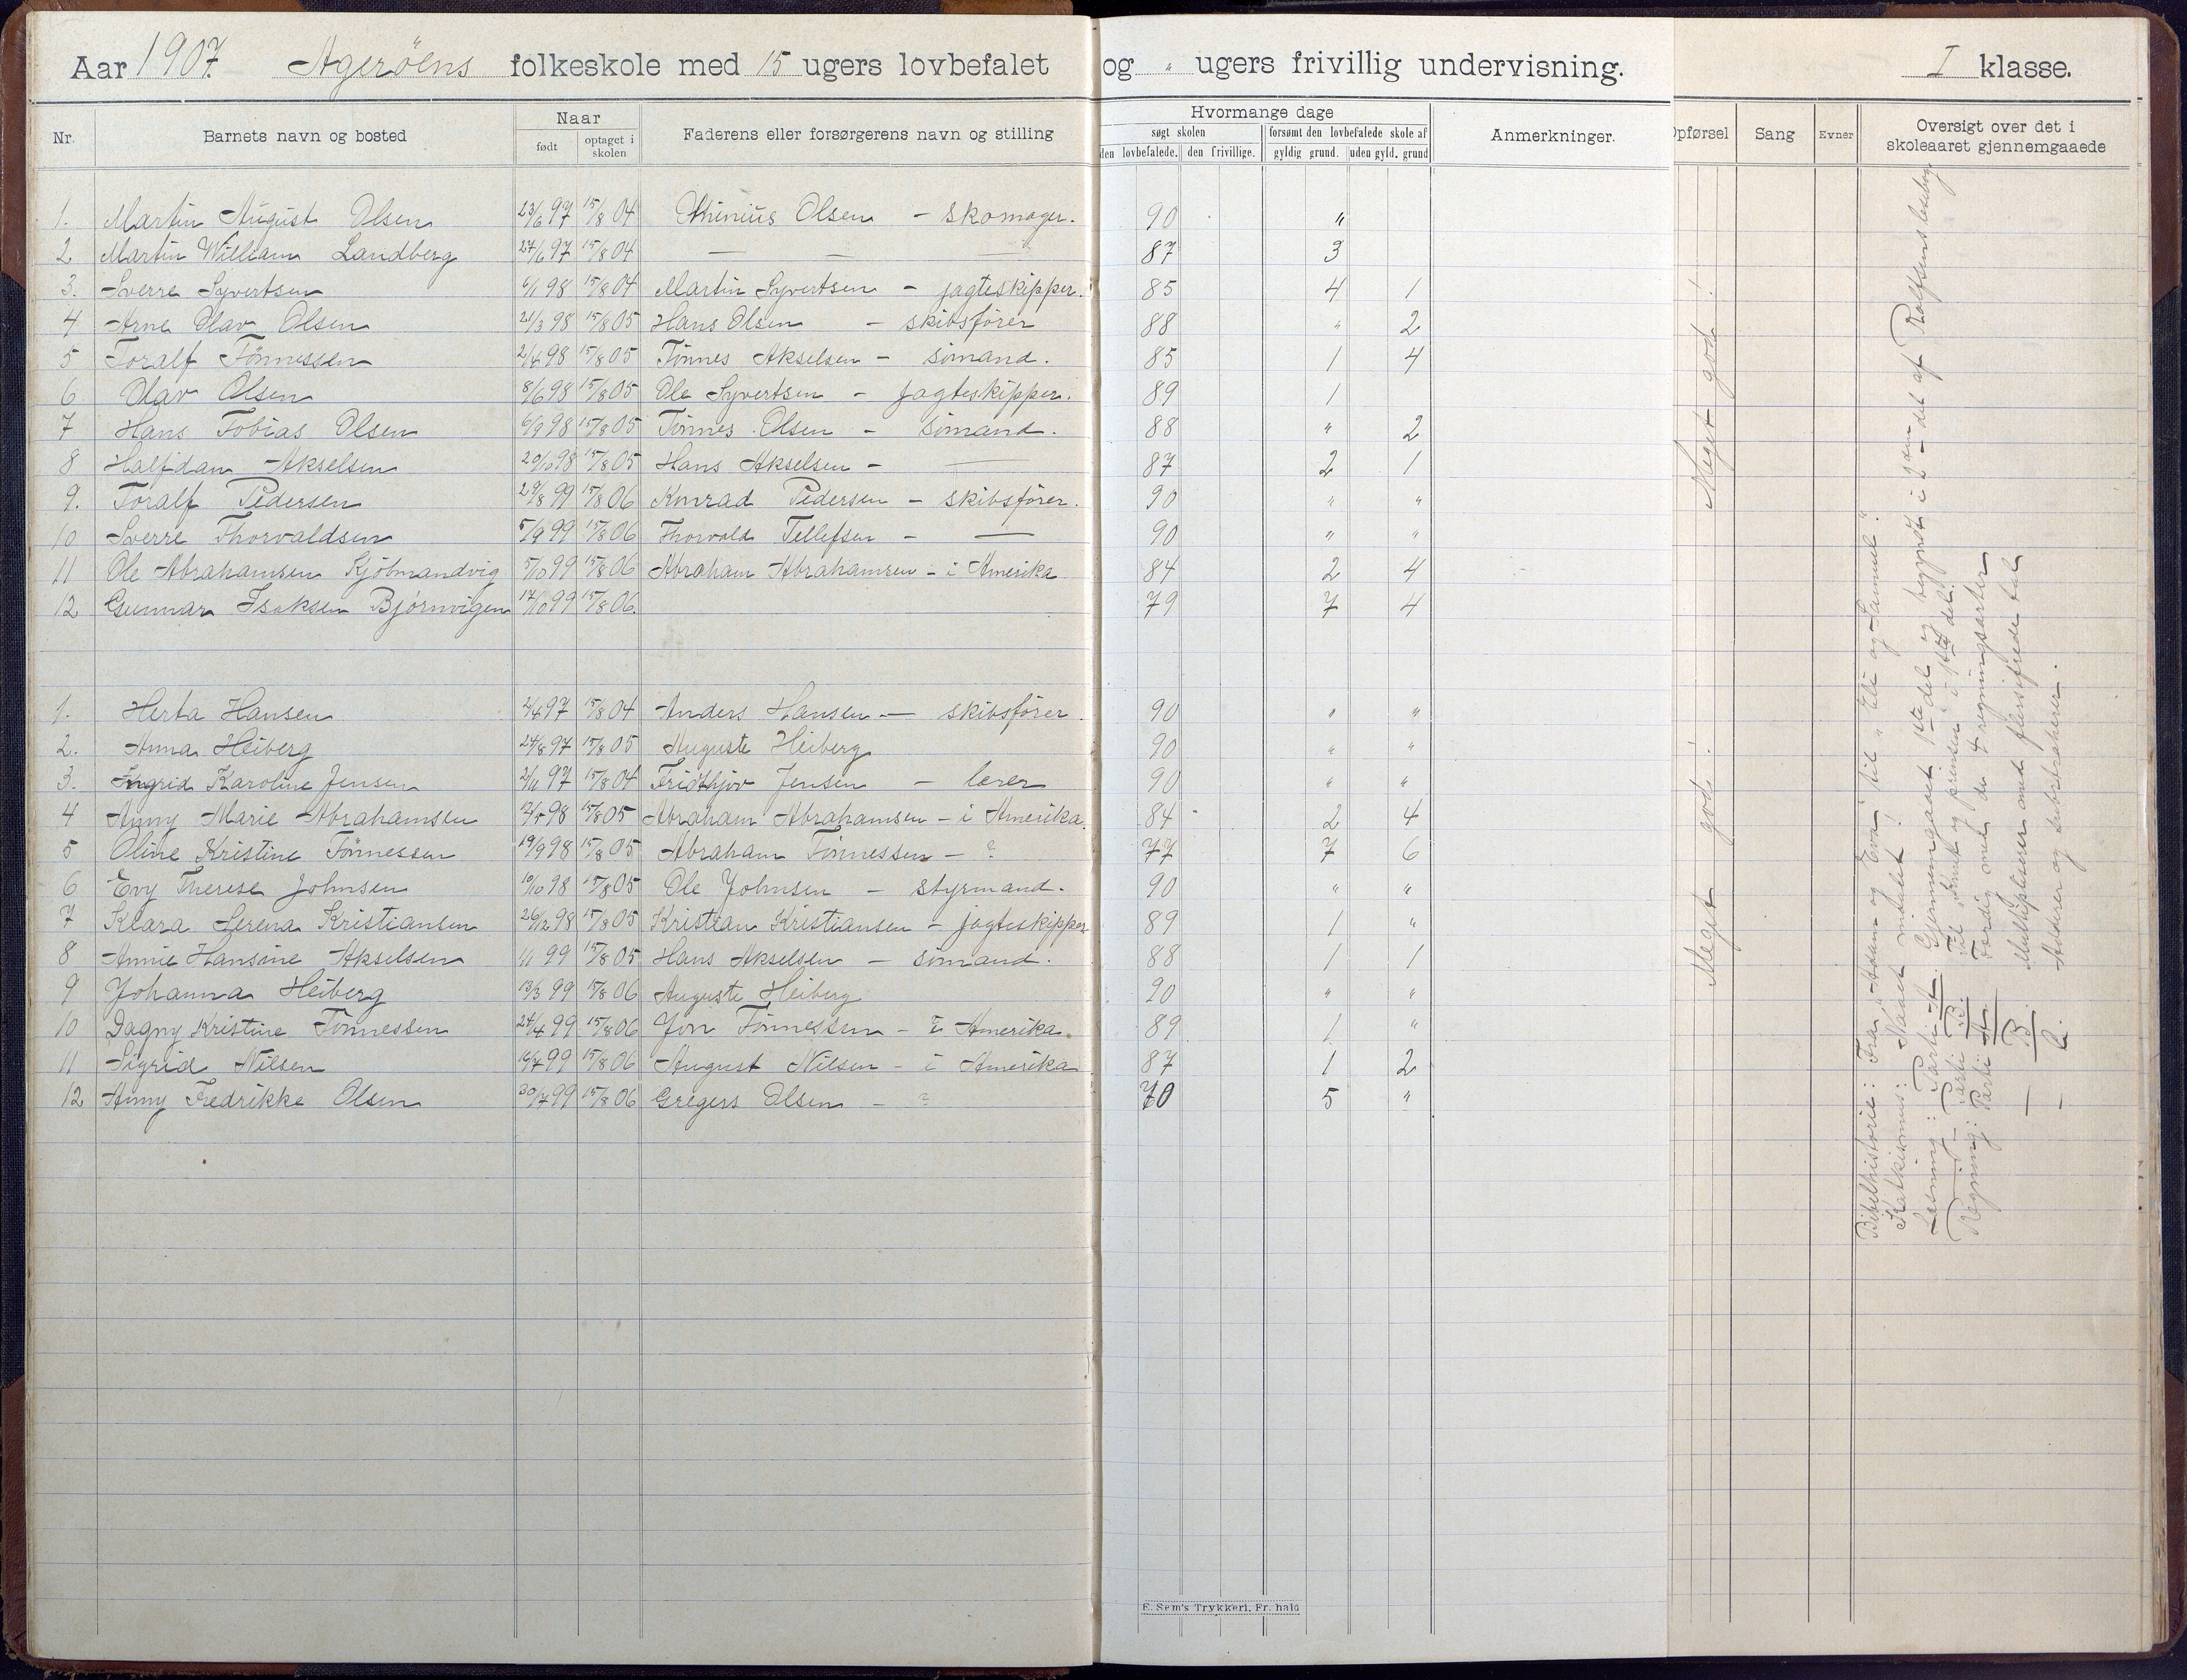 Aar 1907. Agerøens folkeskole med 15 ugers lovbefalet og " ugers frivillig undervisning. I klasse.
Nr. Barnets navn og bosted Naar født optaget i skolen Faderens eller forsørgerens navn og stilling
Hvormange dage søgt skolen den lovbefalede. den frivillige. forsømt den lovbefalede skole af gyldig grund. uden gyld. grund Anmerkninger.
Opførsel Sang Evner Oversigt over det i skoleaaret gjennemgaaede
1. Martin August Olsen 23/6 97 15/8 04 Olsen - skomager. 90 "
2 Martin William Landberg 24/6 97 15/8 04 — — — 87 3
3. Sverre Syvertsen 6/1 98 15/8 04 Martin Syvertsen - jagteskipper. 85 4 1
4 Arne Olav Olsen 21/3 98 15/8 05 Hans Olsen - skibsfører 88 " 2
5 Toralf Tönnessen 2/4 98 15/8 05 Tönnes Akselsen - sömand. 85 1 4
6 Olav Olsen 8/6 98 15/8 05 Ole Syvertsen - jagteskipper. 89 1
7 Hans Tobias Olsen 6/9 98 15/8 05 Tönnes Olsen - sömand. 88 " 2
8 Halfdan Akselsen 20/10 98 15/8 05 Hans Akselsen - — 87 2 1
9. Toralf Pedersen 29/8 99 15/8 06 Konrad Pedersen - skibsfører. 90 " "
10 Sverre Thorvaldsen 5/9 99 15/8 06 Thorvald Tellefsen - — 90 " "
11 Ole Abrahamsen Kjöbmandvig 5/10 99 15/8 06 Abraham Abrahamsen - i Amerika 84 2 4
12 Gunnar Isaksen Bjørnvigen 17/10 99 15/8 06. 79 7 4
1. Herta Hansen 2/4 97 15/8 04 Anders Hansen — skibsfører. 90 " "
2. Anna Heiberg 24/8 97 15/8 05 Auguste Heiberg 90 " "
3. Ingrid Karoline Jensen 2/11 97 15/8 04 Fridthjov Jensen - lærer 90 " "
4 Anny Marie Abrahamsen 98 15/8 05 Abraham Abrahamsen - i Amerika. 84 2 4
5 Oline Kristine Tönnessen 19/9 98 15/8 05 Abraham Tönnessen - ? 77 7 6
6 Evy Therese Johnsen 10/10 98 15/8 05 Ole Johnsen - styrmand. 90 " "
7 Klara Serena Kristiansen 26/12 98 15/8 05 Kristian Kristiansen - jagteskipper 89 1 "
8 Annie Hansine Akselsen 1/1 99 15/8 05 Hans Akselsen - sömand. 88 1 1
9 Johanna Heiberg 13/3 99 15/8 06 Auguste Heiberg 90 " "
10 Dagny Kristine Tönnessen 24/4 99 15/8 06 Jon Tönnessen - i Amerika. 89 1 "
11 Sigrid Nilsen 16/7 99 15/8 06 August Nilsen - i Amerika 87 1 2
12 Anny Fredrikke Olsen 30/7 99 15/8 06 Gregers Olsen - ? 70 5 "
Meget god!
Meget god!
Bibelhistorie: Fra "Adam og Eva" til "Eli og Samuel".
Katekismus: Naaet indtaget!
Læsning: Parti A. Gjennemgaaet 1ste del og begyndt i 2 - det af Rolfsens læsebog
— Parti B. i 1ste del.
Regning: Parti A. Færdig med de 4 regningsarter
— B. Multipliserer med flersifrede tal
— C. Adderer og subtraherer.
E. Sem's Trykkeri, Fr. hald